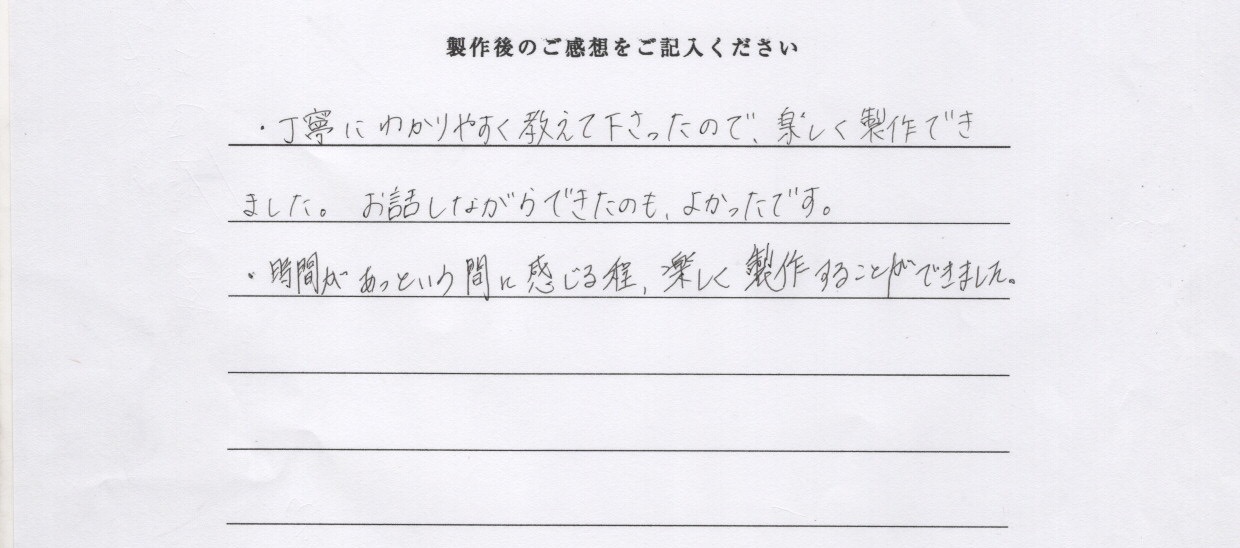 製作後のご感想をご記入ください
・丁寧にわかりやすく教えて下さったので、楽しく製作でき
ました。お話しながらできたのも、よかったです。
・時間があっという間に感じる程、楽しく製作することができました。